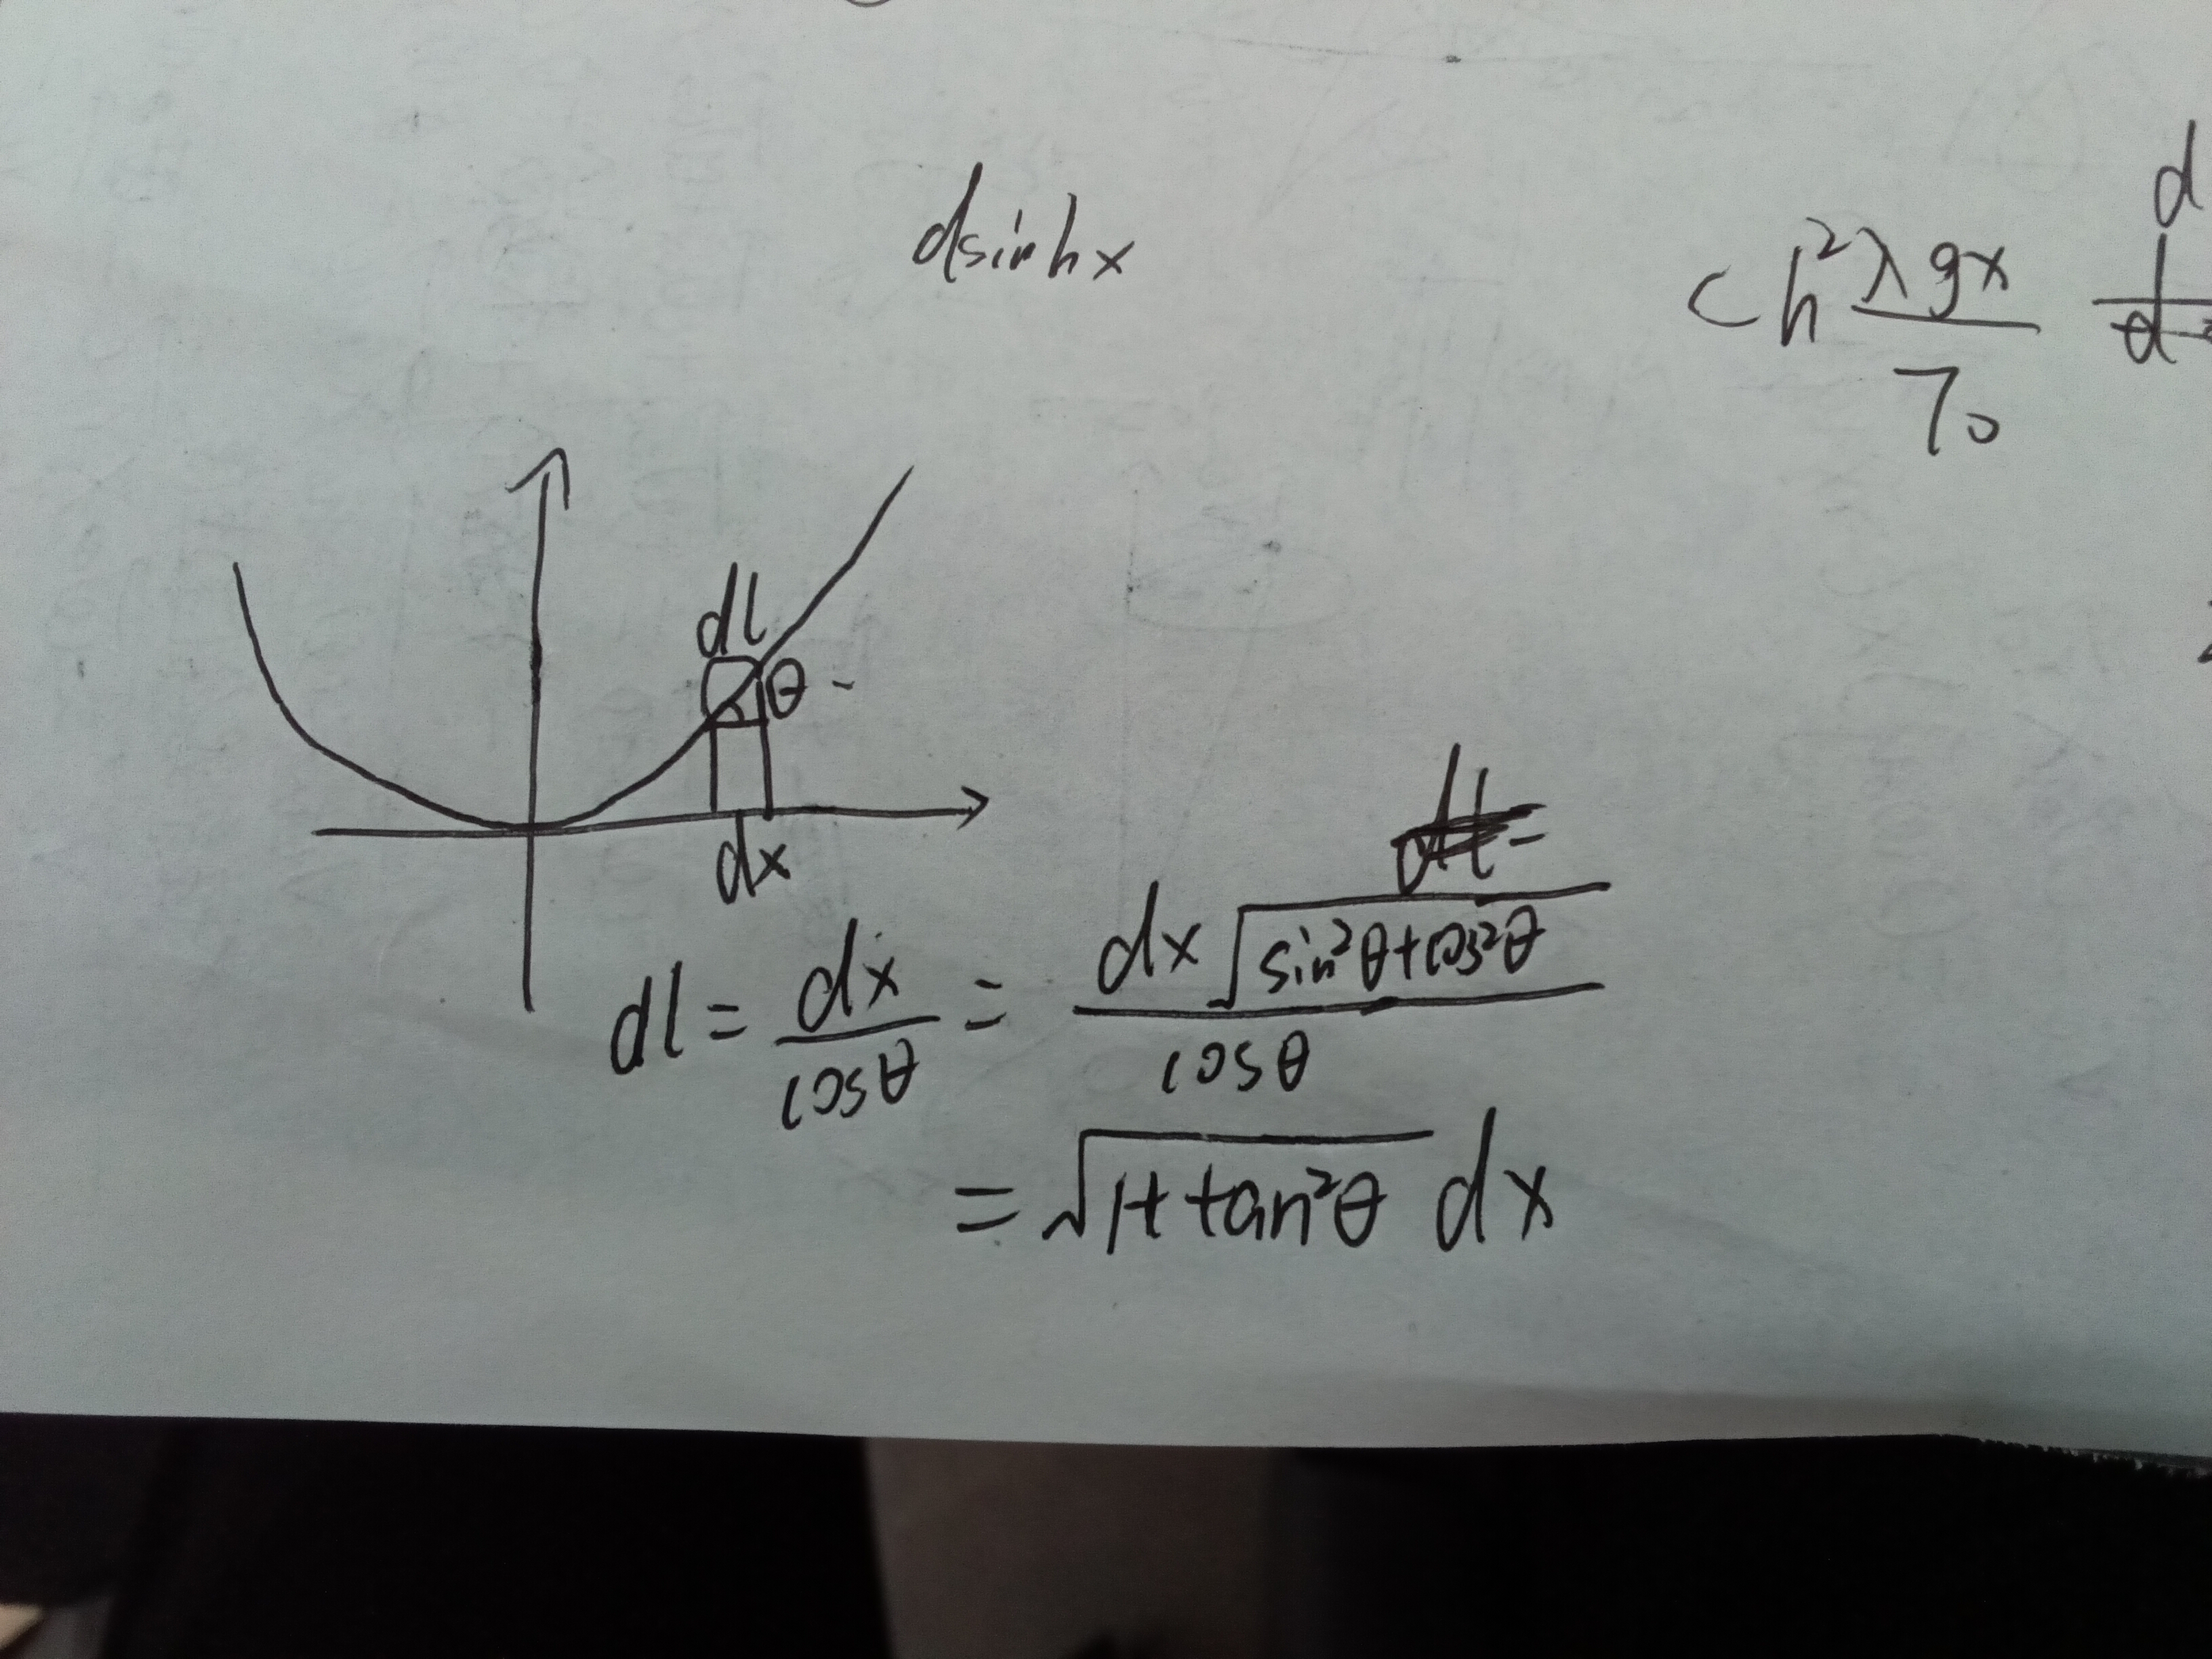 dsinhx
ch²λgx/T₀ d/d
dl
θ
dx
dl = dx/cosθ = dx√(sin²θ+cos²θ)/cosθ
= √(1+tan²θ) dx